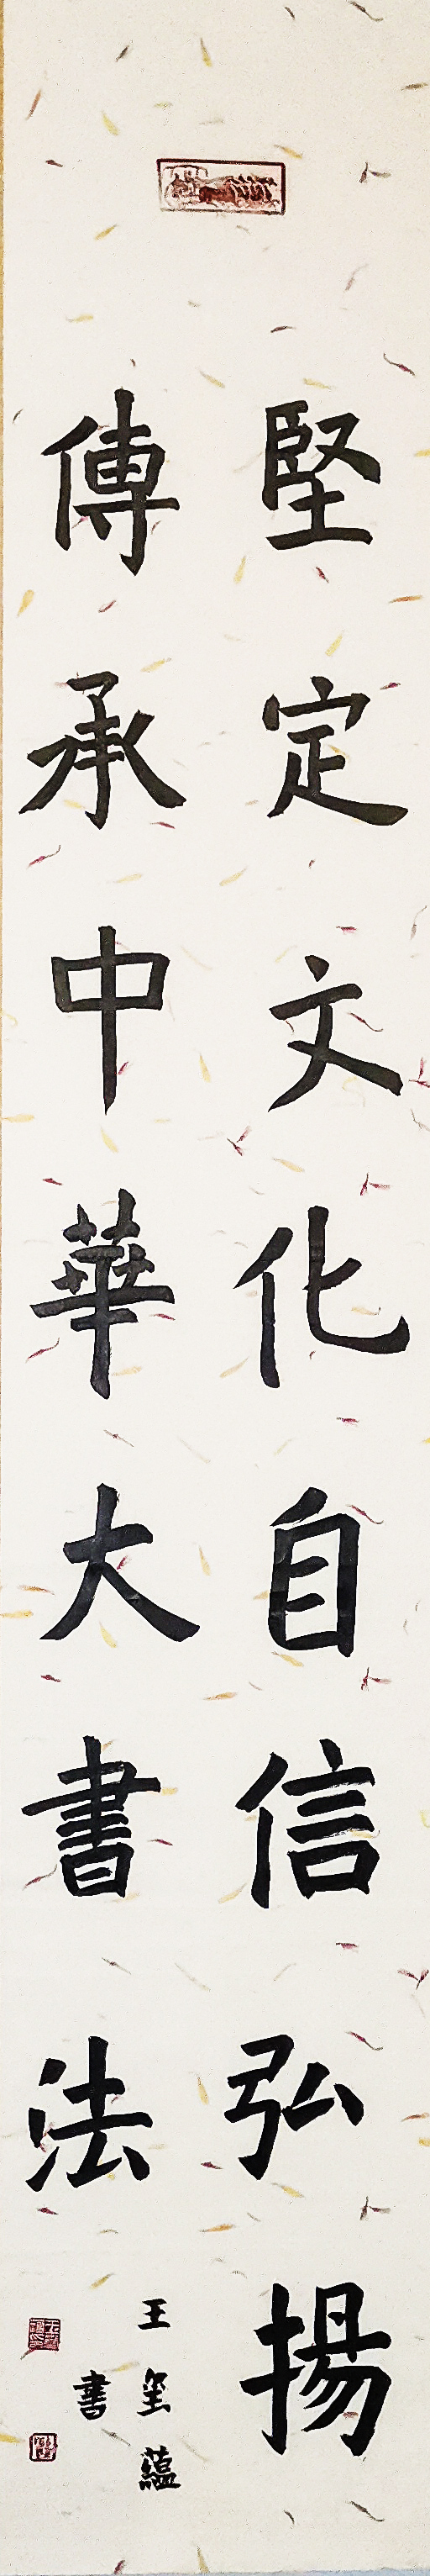 堅定文化自信弘揚
傳承中華大書法
王玺蘊
書